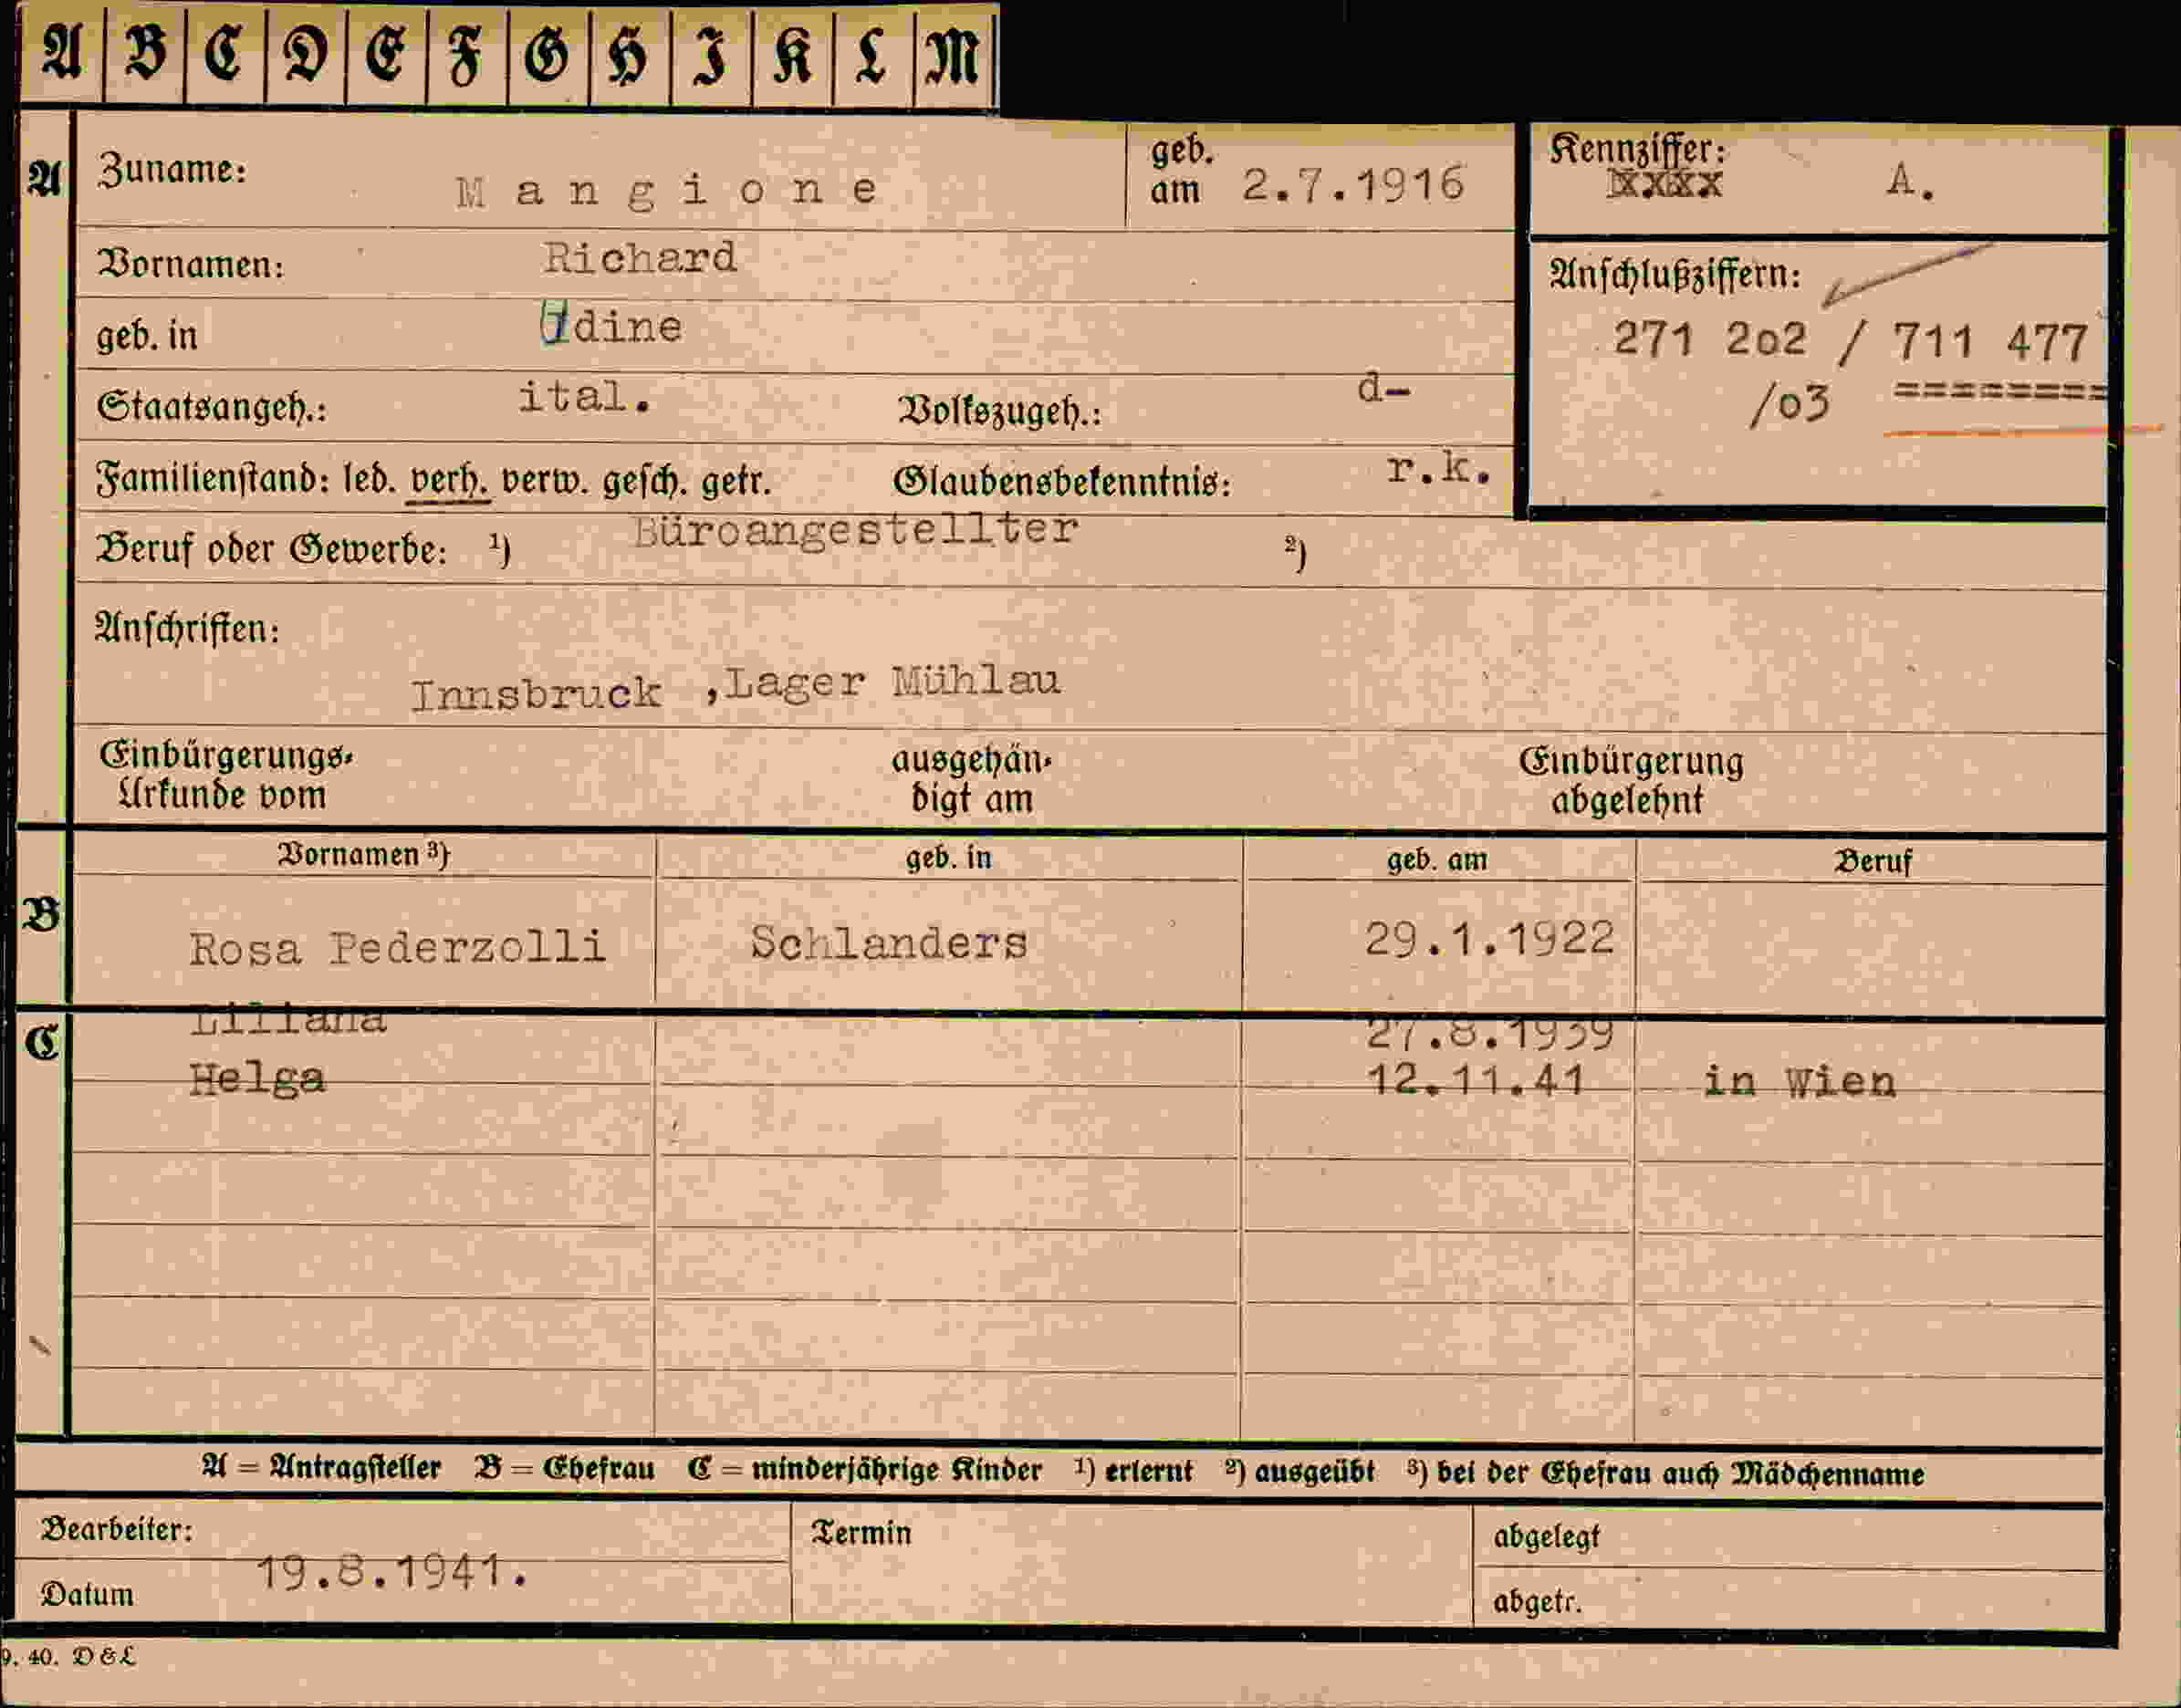 A B C D E F G H I K L M
A Zuname: Mangione geb. am 2.7.1916
Kennziffer: A.
Vornamen: Richard
Anschlußziffern:
271 2o2 / 711 477
/o3 ========
geb. in Udine
Staatsangeh.: ital. Volkszugeh.: d-
Familienstand: led. verh. verw. gesch. getr. Glaubensbekenntnis: r.k.
Beruf oder Gewerbe: 1) Büroangestellter 2)
Anschriften:
Innsbruck ,Lager Mühlau
Einbürgerungs-Urkunde vom ausgehän-digt am Einbürgerung abgelehnt
Vornamen 3) geb. in geb. am Beruf
B Rosa Pederzolli Schlanders 29.1.1922
C Liliana 27.8.1939
Helga 12.11.41 in Wien
A = Antragsteller B = Ehefrau C = minderjährige Kinder 1) erlernt 2) ausgeübt 3) bei der Ehefrau auch Mädchenname
Bearbeiter: Termin abgelegt
Datum 19.8.1941. abgetr.
9. 40. D & L